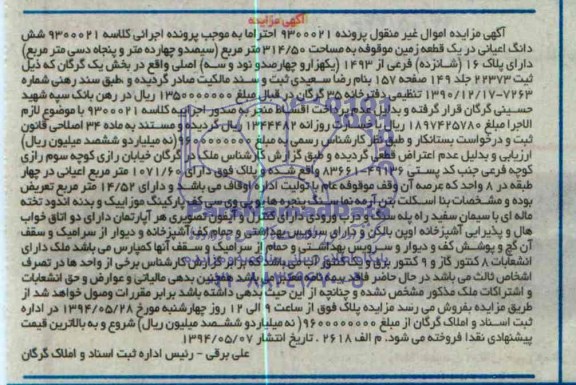 آگهی مزایده
آگهی مزایده اموال غیر منقول پرونده ۹۳۰۰۰۲۱ احتراما به موجب پرونده اجرائی کلاسه ۹۳۰۰۰۲۱ شش
دانگ اعیانی در یک قطعه زمین موقوفه به مساحت ۳۱۴/۵۰ متر مربع (سیصدو چهارده متر و پنجاه دسی متر مربع)
دارای پلاک ۱۶ (شانزده) فرعی از ۱۴۹۳ (یکهزارو چهارصدو نود و سه) اصلی واقع در بخش یک گرگان که ذیل
ثبت ۲۲۳۷۳ جلد ۱۴۹ صفحه ۱۵۷ بنام رضا سعیدی ثبت و سند مالکیت صادر گردیده و .طبق سند رهنی شماره
۷۲۶۳-۱۳۹۰/۱۲/۱۷ تنظیمی دفترخانه ۳۵ گرگان در قبال مبلغ ۱۳۵۰۰۰۰۰۰۰ ریال در رهن بانک سپه شهید
حسینی گرگان قرار گرفته و بدلیل عدم پرداخت اقساط منجر به صدور اجرائیه کلاسه ۹۳۰۰۰۲۱ با موضوع لازم
الاجرا مبلغ ۱۸۹۷۴۲۵۷۸۰ ریال با خسارت روزانه ۱۳۴۴۴۸۲ ریال گردیده و مستند به ماده ۳۴ اصلاحی قانون
ثبت و درخواست بستانکار و طبق نظر کارشناس رسمی به مبلغ ۹۶۰۰۰۰۰۰۰۰ (نه میلیارد و ششصد میلیون ریال)
ارزیابی و بدلیل عدم اعتراض قطعی گردیده و طبق گزارش کارشناس ملک در گرگان خیابان رازی کوچه سوم رازی
کوچه فرعی جنب کد پستی ۴۹۱۳۶-۸۳۶۶۱ واقع شده و پلاک فوق دارای ۱۰۷۱/۶۰ متر مربع اعیانی در چهار
طبقه در ۸ واحد که عرصه آن وقف موقوفه عام با تولیت اداره اوقاف می باشد و دارای ۱۴/۵۲ متر مربع تعریض
بوده و مشخصات بنا اسکلت بتن آرمه نما سنگ پنجره ها یو پی وی سی کف پارکینگ موزاییک و بدنه اندود تخته
ماله ای با سیمان سفید راه پله سنگ درب ورودی دارای کنترل و آیفون تصویری هر آپارتمان دارای دو اتاق خواب
هال و پذیرایی آشپزخانه اوپن بالکن و دارای سرویس بهداشتی و حمام کف آشپزخانه و دیوار از سرامیک و سقف
آن گچ و پوشش کف و دیوار و سرویس بهداشتی و حمام از سرامیک و سقف آنها کمپارس می باشد ملک دارای
انشعابات ۸ کنتور گاز و ۹ کنتور برق و یک کنتور آب می باشد که برابر گزارش کارشناس برخی از واحد ها در تصرف
اشخاص ثالث می باشد در حال حاضر فاقد بیمه نامه معتبر می باشد همچنین بدهی مالیاتی و عوارض و حق انشعابات
و اشتراکات ملک مذکور مشخص نشده و چنانچه از این حیث بدهی داشته باشد برابر مقررات وصول خواهد شد از
طریق مزایده بفروش می رسد مزایده پلاک فوق از ساعت ۹ الی ۱۲ روز چهارشنبه مورخ ۱۳۹۴/۰۵/۲۸ در اداره
ثبت اسناد و املاک گرگان از مبلغ ۹۶۰۰۰۰۰۰۰۰ (نه میلیاردو ششصد میلیون ریال) شروع و به بالاترین قیمت
پیشنهادی نقدا فروخته می شود. م الف ۲۶۱۸ . تاریخ انتشار ۱۳۹۴/۰۵/۰۷
علی برقی - رئیس اداره ثبت اسناد و املاک گرگان